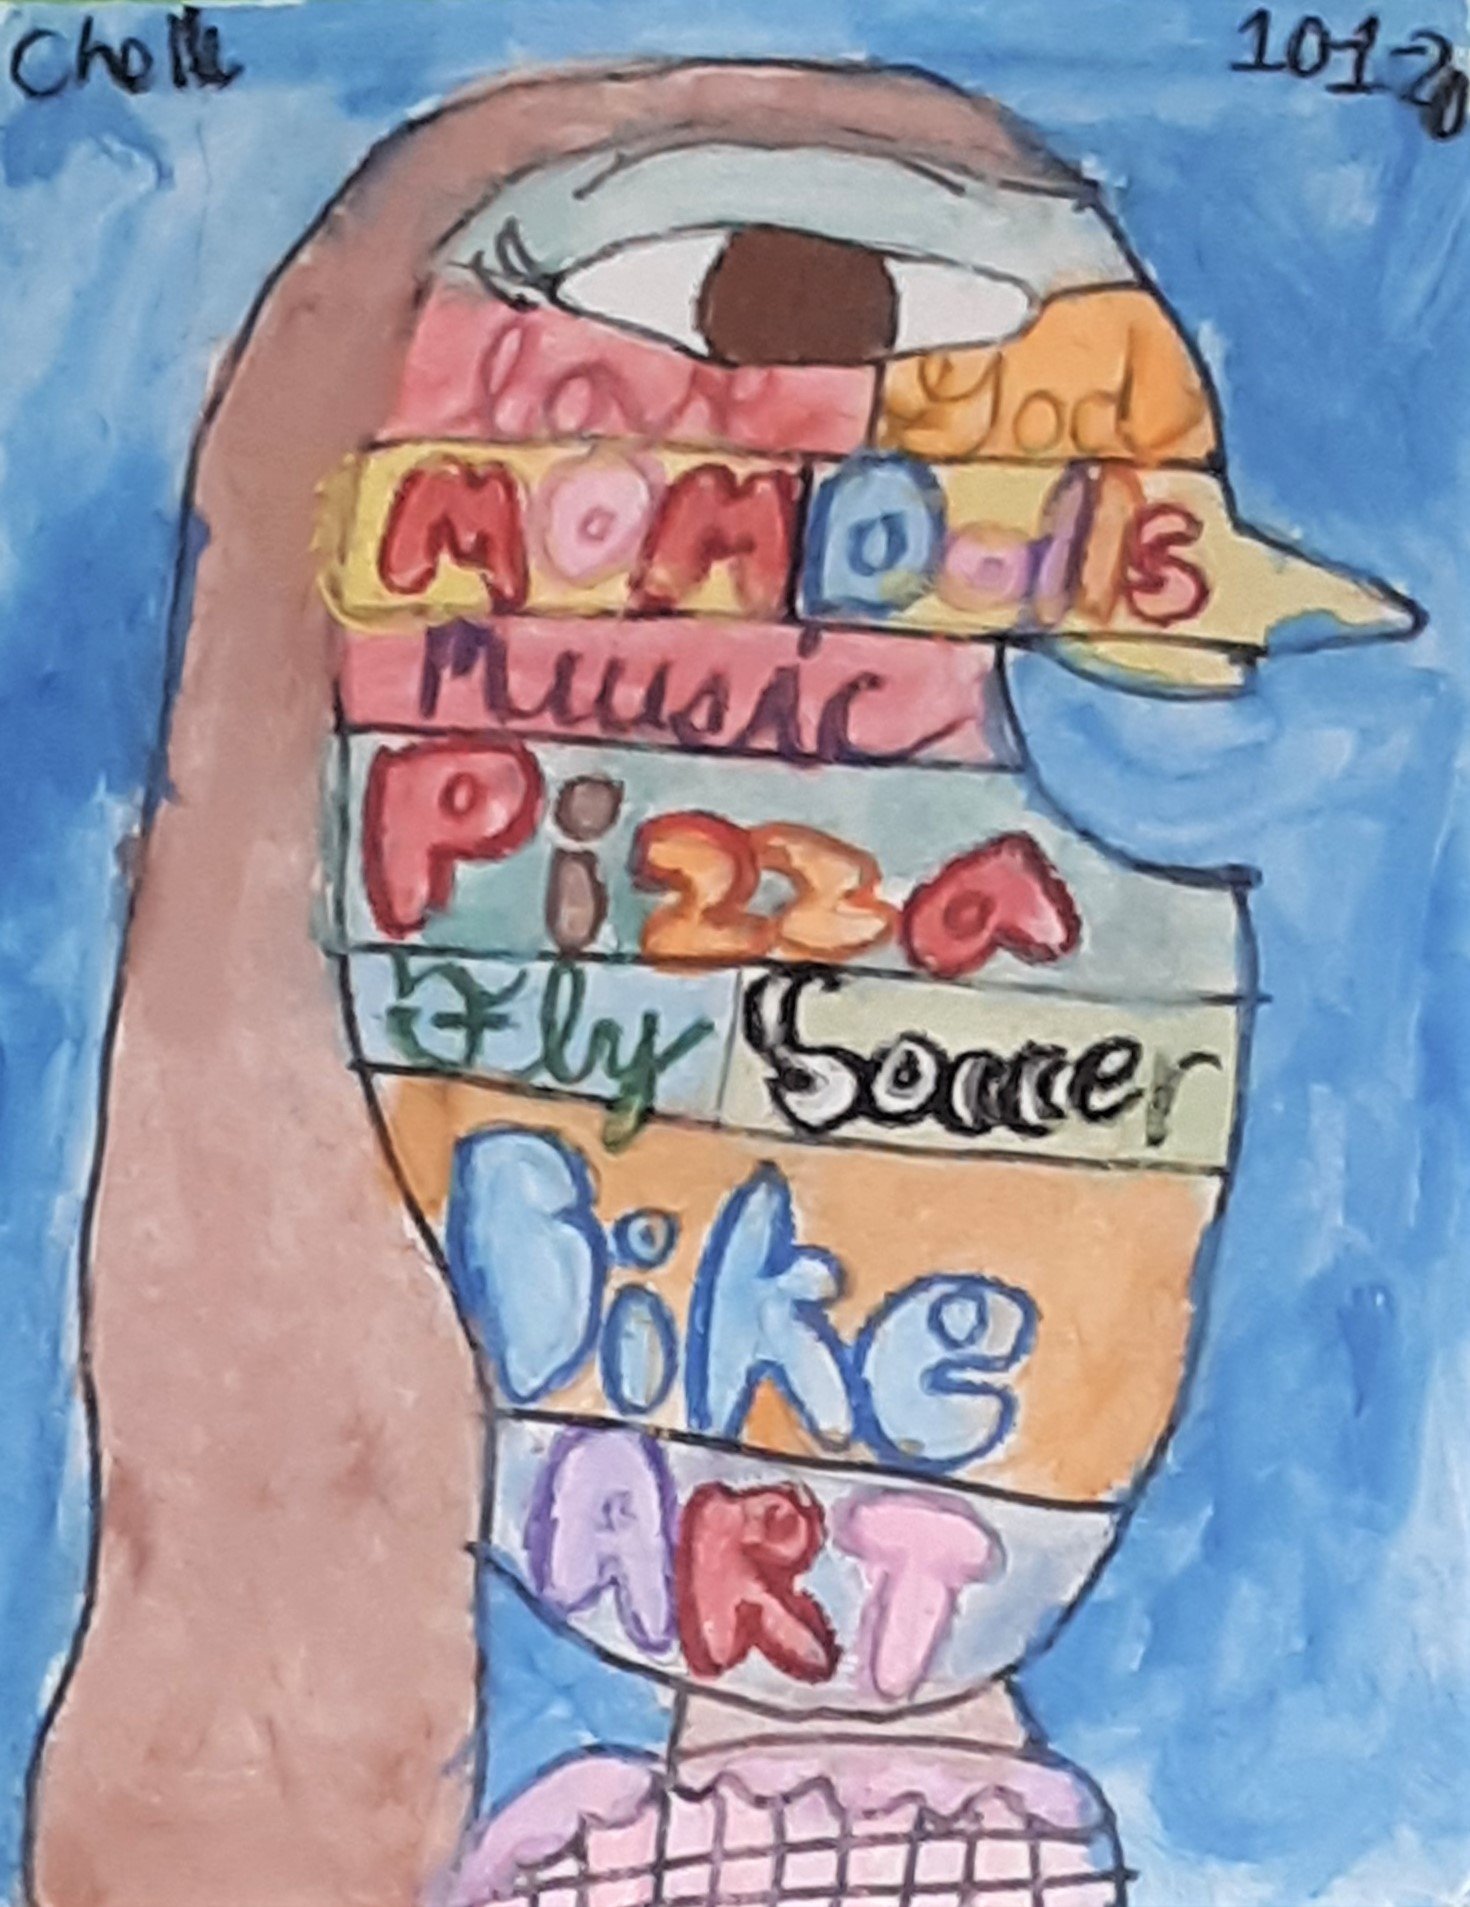 10-1-20
love God
MOM Dolls
Music
Pizza
Fly Soccer
Bike
ART